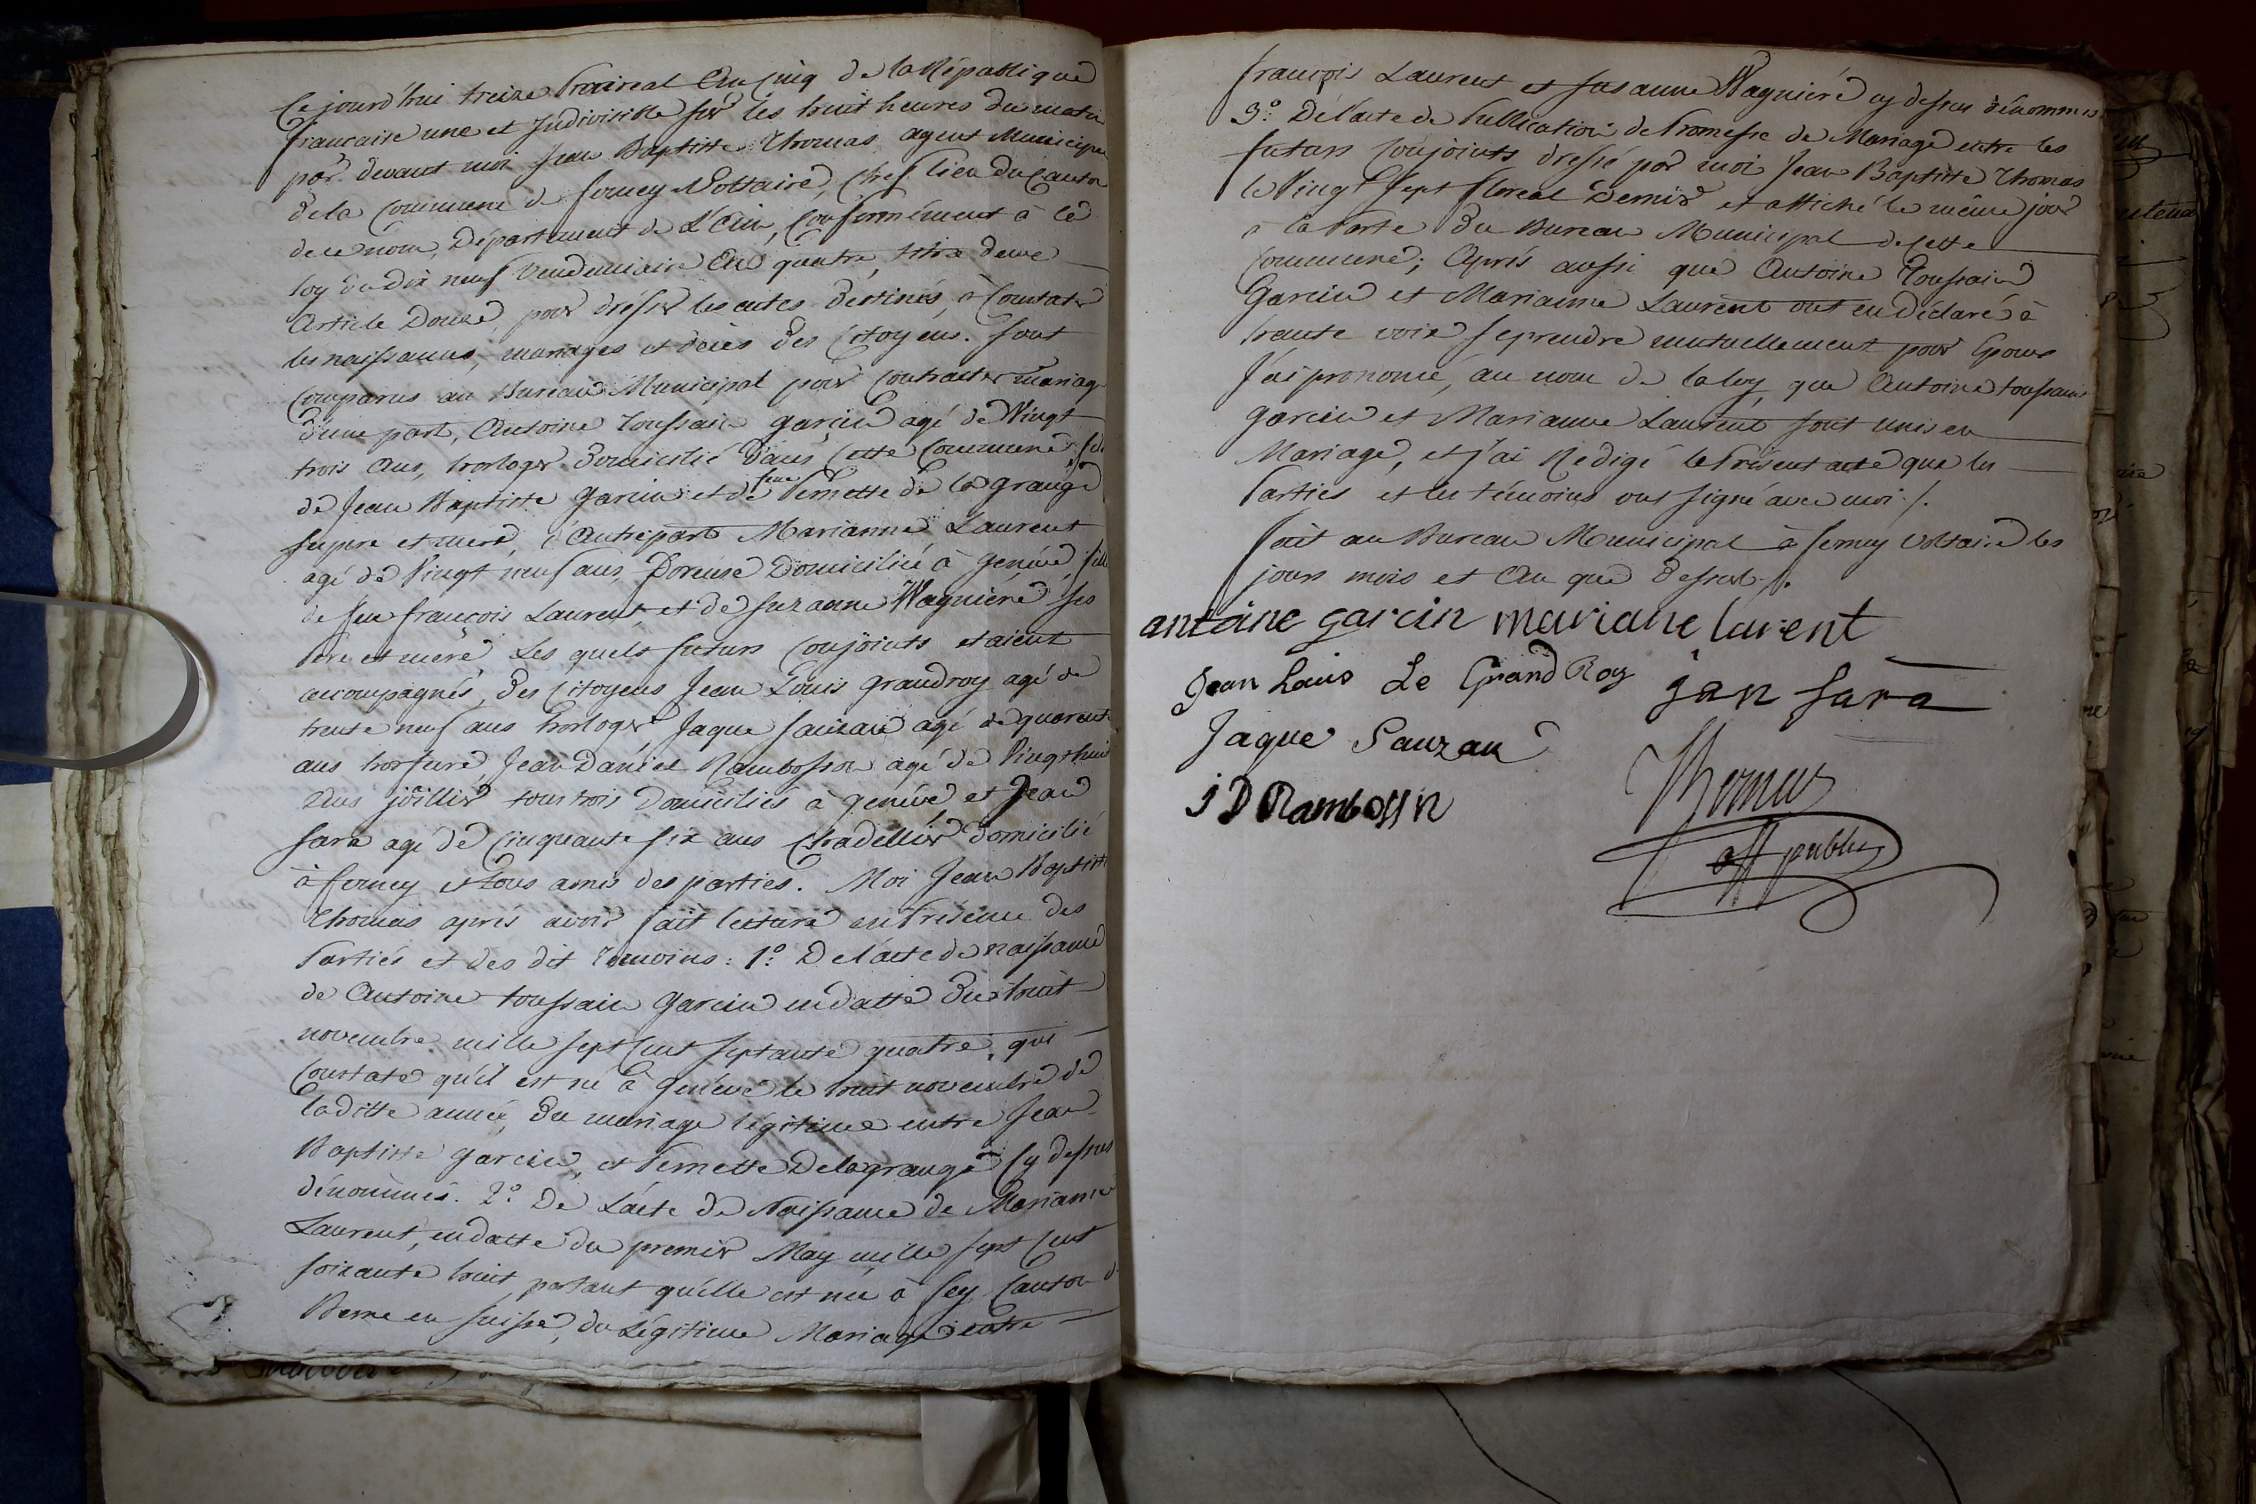 Ce jourd'hui treize Praireal An Cinq de la République
francaise une et Indivisible sur les huit heures du matin
par devant moi Jean Baptiste Thomas agent Municipal
de la Commune de ferney Voltaire, Chef lieu du Canton
de ce nom, Département de L'Ain, Conformément à la
loy du dix neuf Vendemiaire An quatre, titre deux
Article Douze, pour dresser les actes destinés à Constater
les naissances, mariages et décès des Citoyens. sont
Comparus au Bureau Municipal pour Contracter mariage
d'une part, Antoine Toussain garcin agé de Vingt
trois ans, horloger domicilié dans Cette Commune, fils
de Jean Baptiste garcin et de feue Pernette de la grange
ses pere et mere, d'Autre part Marianne Laurent
agé de Vingt neuf ans, Doreuse Domiciliée à genève fille
de feu françois Laurent, et de Suzanne Wagniéré ses
Pere et mère Les quels futurs Conjoints etaient
accompagnés, des Citoyens Jean Louis grandroy agé de
trente neuf ans horloger Jaque Sauzau agé de quarente
ans horfevre, Jean Daniel Rambosson agé de Vingt huit
ans joillier tous trois Domiciliés à genève et Jean
Sara agé de Cinquante six ans Chadellier domicilié
à ferney et tous amis des parties. Moi Jean Baptiste
Thomas après avoir fait lecture en Présence des
Parties et des dit Témoins : 1º. De l'acte de naissance
de Antoine toussain garcin en datte du huit
novembre mille sept Cent septante quatre, qui
Constate qu'il est né à genève le huit novembre de
la ditte année, du mariage légitime entre Jean
Baptiste garcin, et Pernette Delagrange Cy dessus
dénommés. 2º De L'acte de Naissance de Marianne
Laurent, en datte du premier May mille sept Cent
soixante huit, portant qu'elle est née à Cey Canton de
Berne en Suisse, du Légitime Mariage entre
françois Laurent et Susanne Wagniéré cy dessus dénommés
3º. De l'acte de Publication de Promesse de Mariage entre les
futurs Conjoints dressé par moi Jean Baptiste Thomas
le Vingt Sept floreal Dernier et affiché le même jour
à la Porte du Bureau Municipal de Cette
Commune ; Après aussi que Antoine Toussain
Garcin et Marianne Laurent ont eu Déclaré à
haute voix se prendre mutuellement pour Epoux
J'ai prononcé, au nom de la loy, que Antoine toussaint
garcin et Marianne Laurent sont unis en
Mariage, et j'ai Redigé le Présent acte que les
Parties et les témoins ont signé avec moi /.
fait au Bureau Municipal à ferney Voltaire les
jours mois et An que dessus /.
antoine garcin mariane laurent
Jean Louis Le Grand Roy jan Sara
Jaque Sauzau
J D Rambossn
Thomas
off public